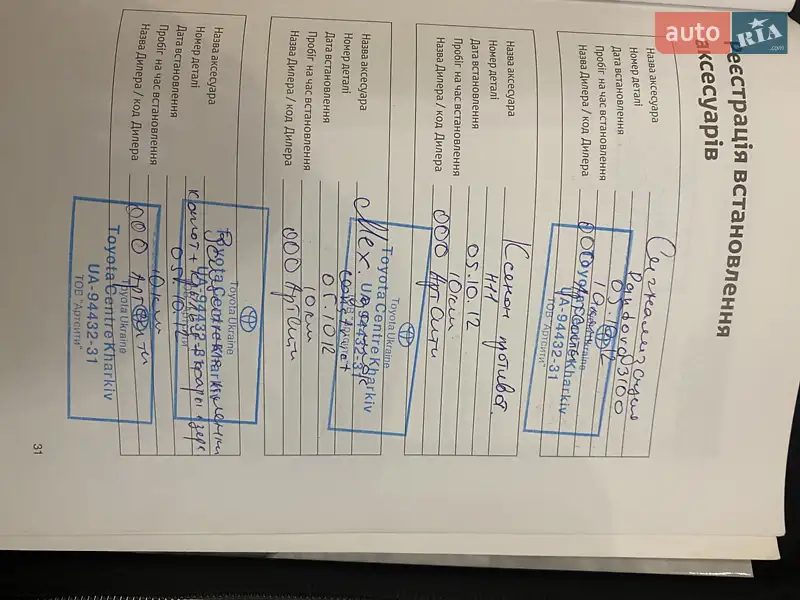 auto RIA .com
реєстрація встановлення
аксесуарів
Назва аксесуара Сигнализация
Номер деталі Pandora 3100
Дата встановлення 05.10.12
Пробіг на час встановлення 10км
Назва Дилера / код Дилера ООО АртСити
Toyota Ukraine
Toyota Centre Kharkiv
UA-94432-31
ТОВ "Артсити"
Назва аксесуара Ксенон противот.
Номер деталі НН
Дата встановлення 05.10.12
Пробіг на час встановлення 10км
Назва Дилера / код Дилера ООО АртСити
Toyota Ukraine
Toyota Centre Kharkiv
UA-94432-31
Назва аксесуара Мех.
Номер деталі
Дата встановлення 05.10.12
Пробіг на час встановлення 10км
Назва Дилера / код Дилера ООО АртСити
Toyota Ukraine
Toyota Centre Kharkiv
UA-94432-31
Назва аксесуара
Номер деталі
Дата встановлення 05.10.12
Пробіг на час встановлення 10км
Назва Дилера / код Дилера ООО АртСити
Toyota Ukraine
Toyota Centre Kharkiv
UA-94432-31
ТОВ "Артсити"
31